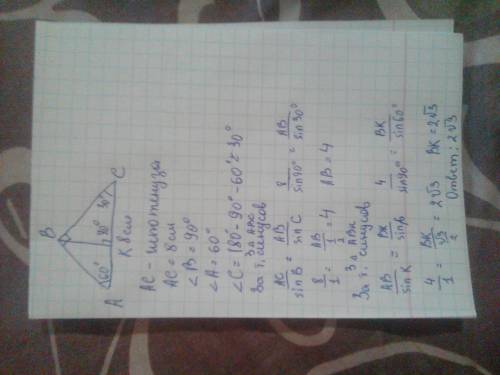 B
60° 90° 30°
A K 8 см C
AC - гіпотенуза
AC = 8 см
∠B = 90°
∠A = 60°
∠C = 180° - 90° - 60° = 30°
З Δ ABC
За т. синусів
AC/sin B = AB/sin C 8/sin 90° = AB/sin 30°
8/1 = AB/(1/2) = 4 AB = 4
З Δ ABK
За т. синусів
AB/sin K = BK/sin A 4/sin 90° = BK/sin 60°
4/1 = BK/(√3/2) = 2√3 BK = 2√3
Ответ: 2√3